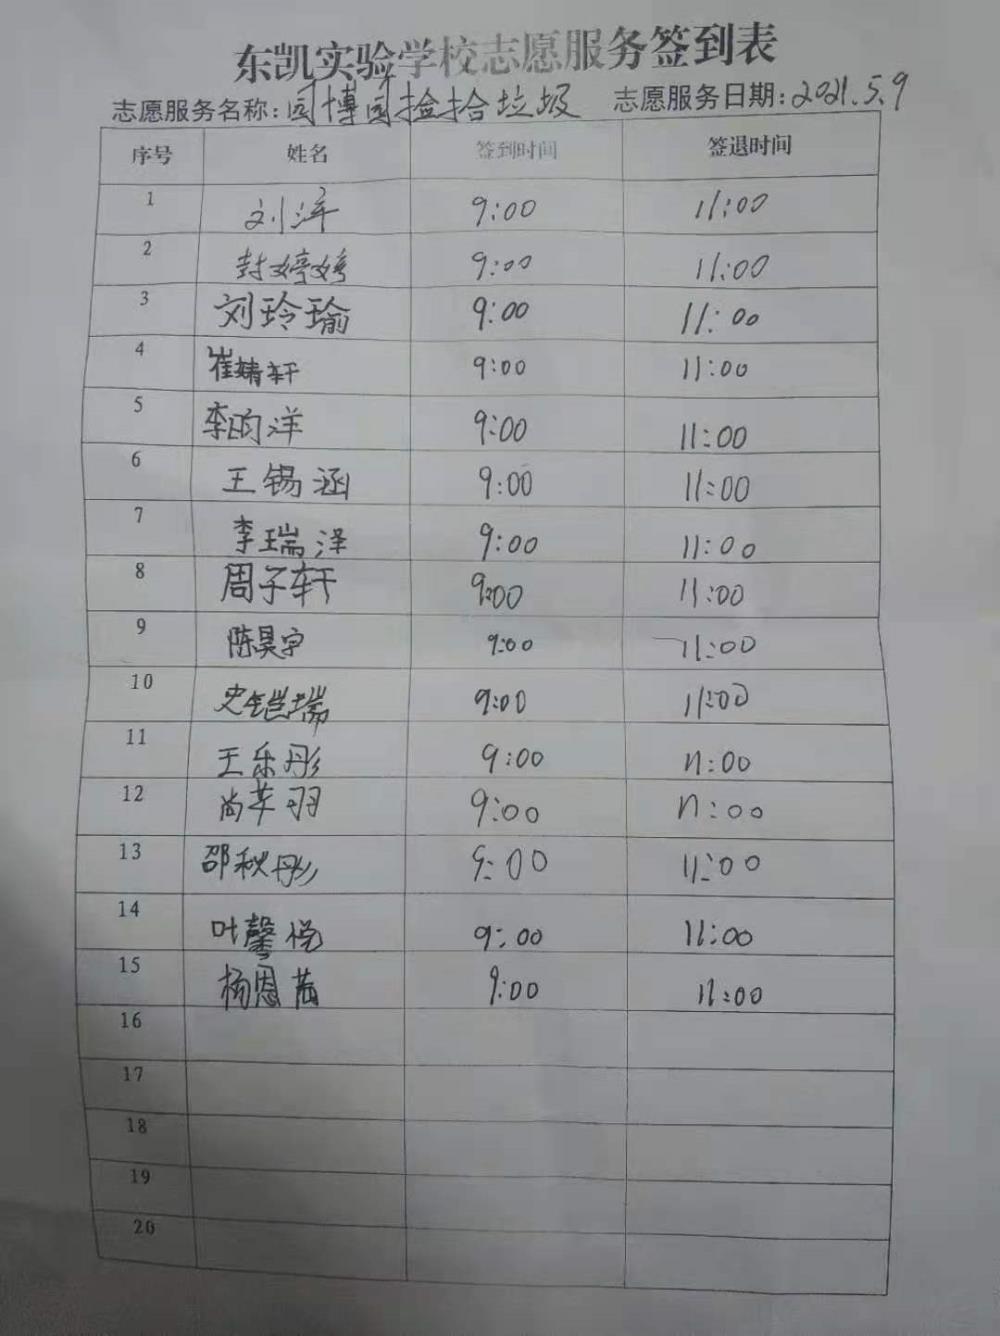 东凯实验学校志愿服务签到表
志愿服务名称:园博园捡拾垃圾 志愿服务日期:2021.5.9
序号 姓名 签到时间 签退时间
1 刘洋 9:00 11:00
2 封婷婷 9:00 11:00
3 刘玲瑜 9:00 11:00
4 崔婧轩 9:00 11:00
5 李昀洋 9:00 11:00
6 王锡涵 9:00 11:00
7 李瑞泽 9:00 11:00
8 周子轩 9:00 11:00
9 陈昊宇 9:00 11:00
10 史铠瑞 9:00 11:00
11 王乐彤 9:00 11:00
12 9:00 11:00
13 邵秋彤 9:00 11:00
14 叶馨悦 9:00 11:00
15 杨恩茜 9:00 11:00
16
17
18
19
20